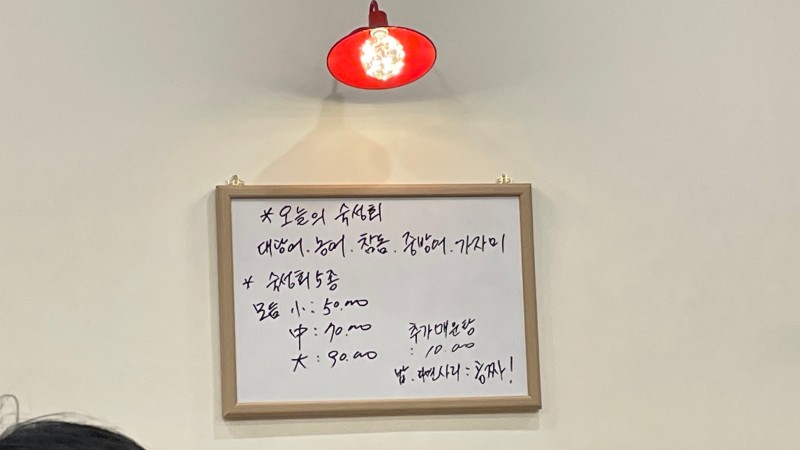 * 오늘의 숙성회
대광어. 농어. 참돔. 중방어. 가자미
* 숙성회 5종
모듬 小 : 50.000
中 : 70.000
大 : 90.000
추가매운탕
: 10.000
밥. 라면사리 : 공짜!